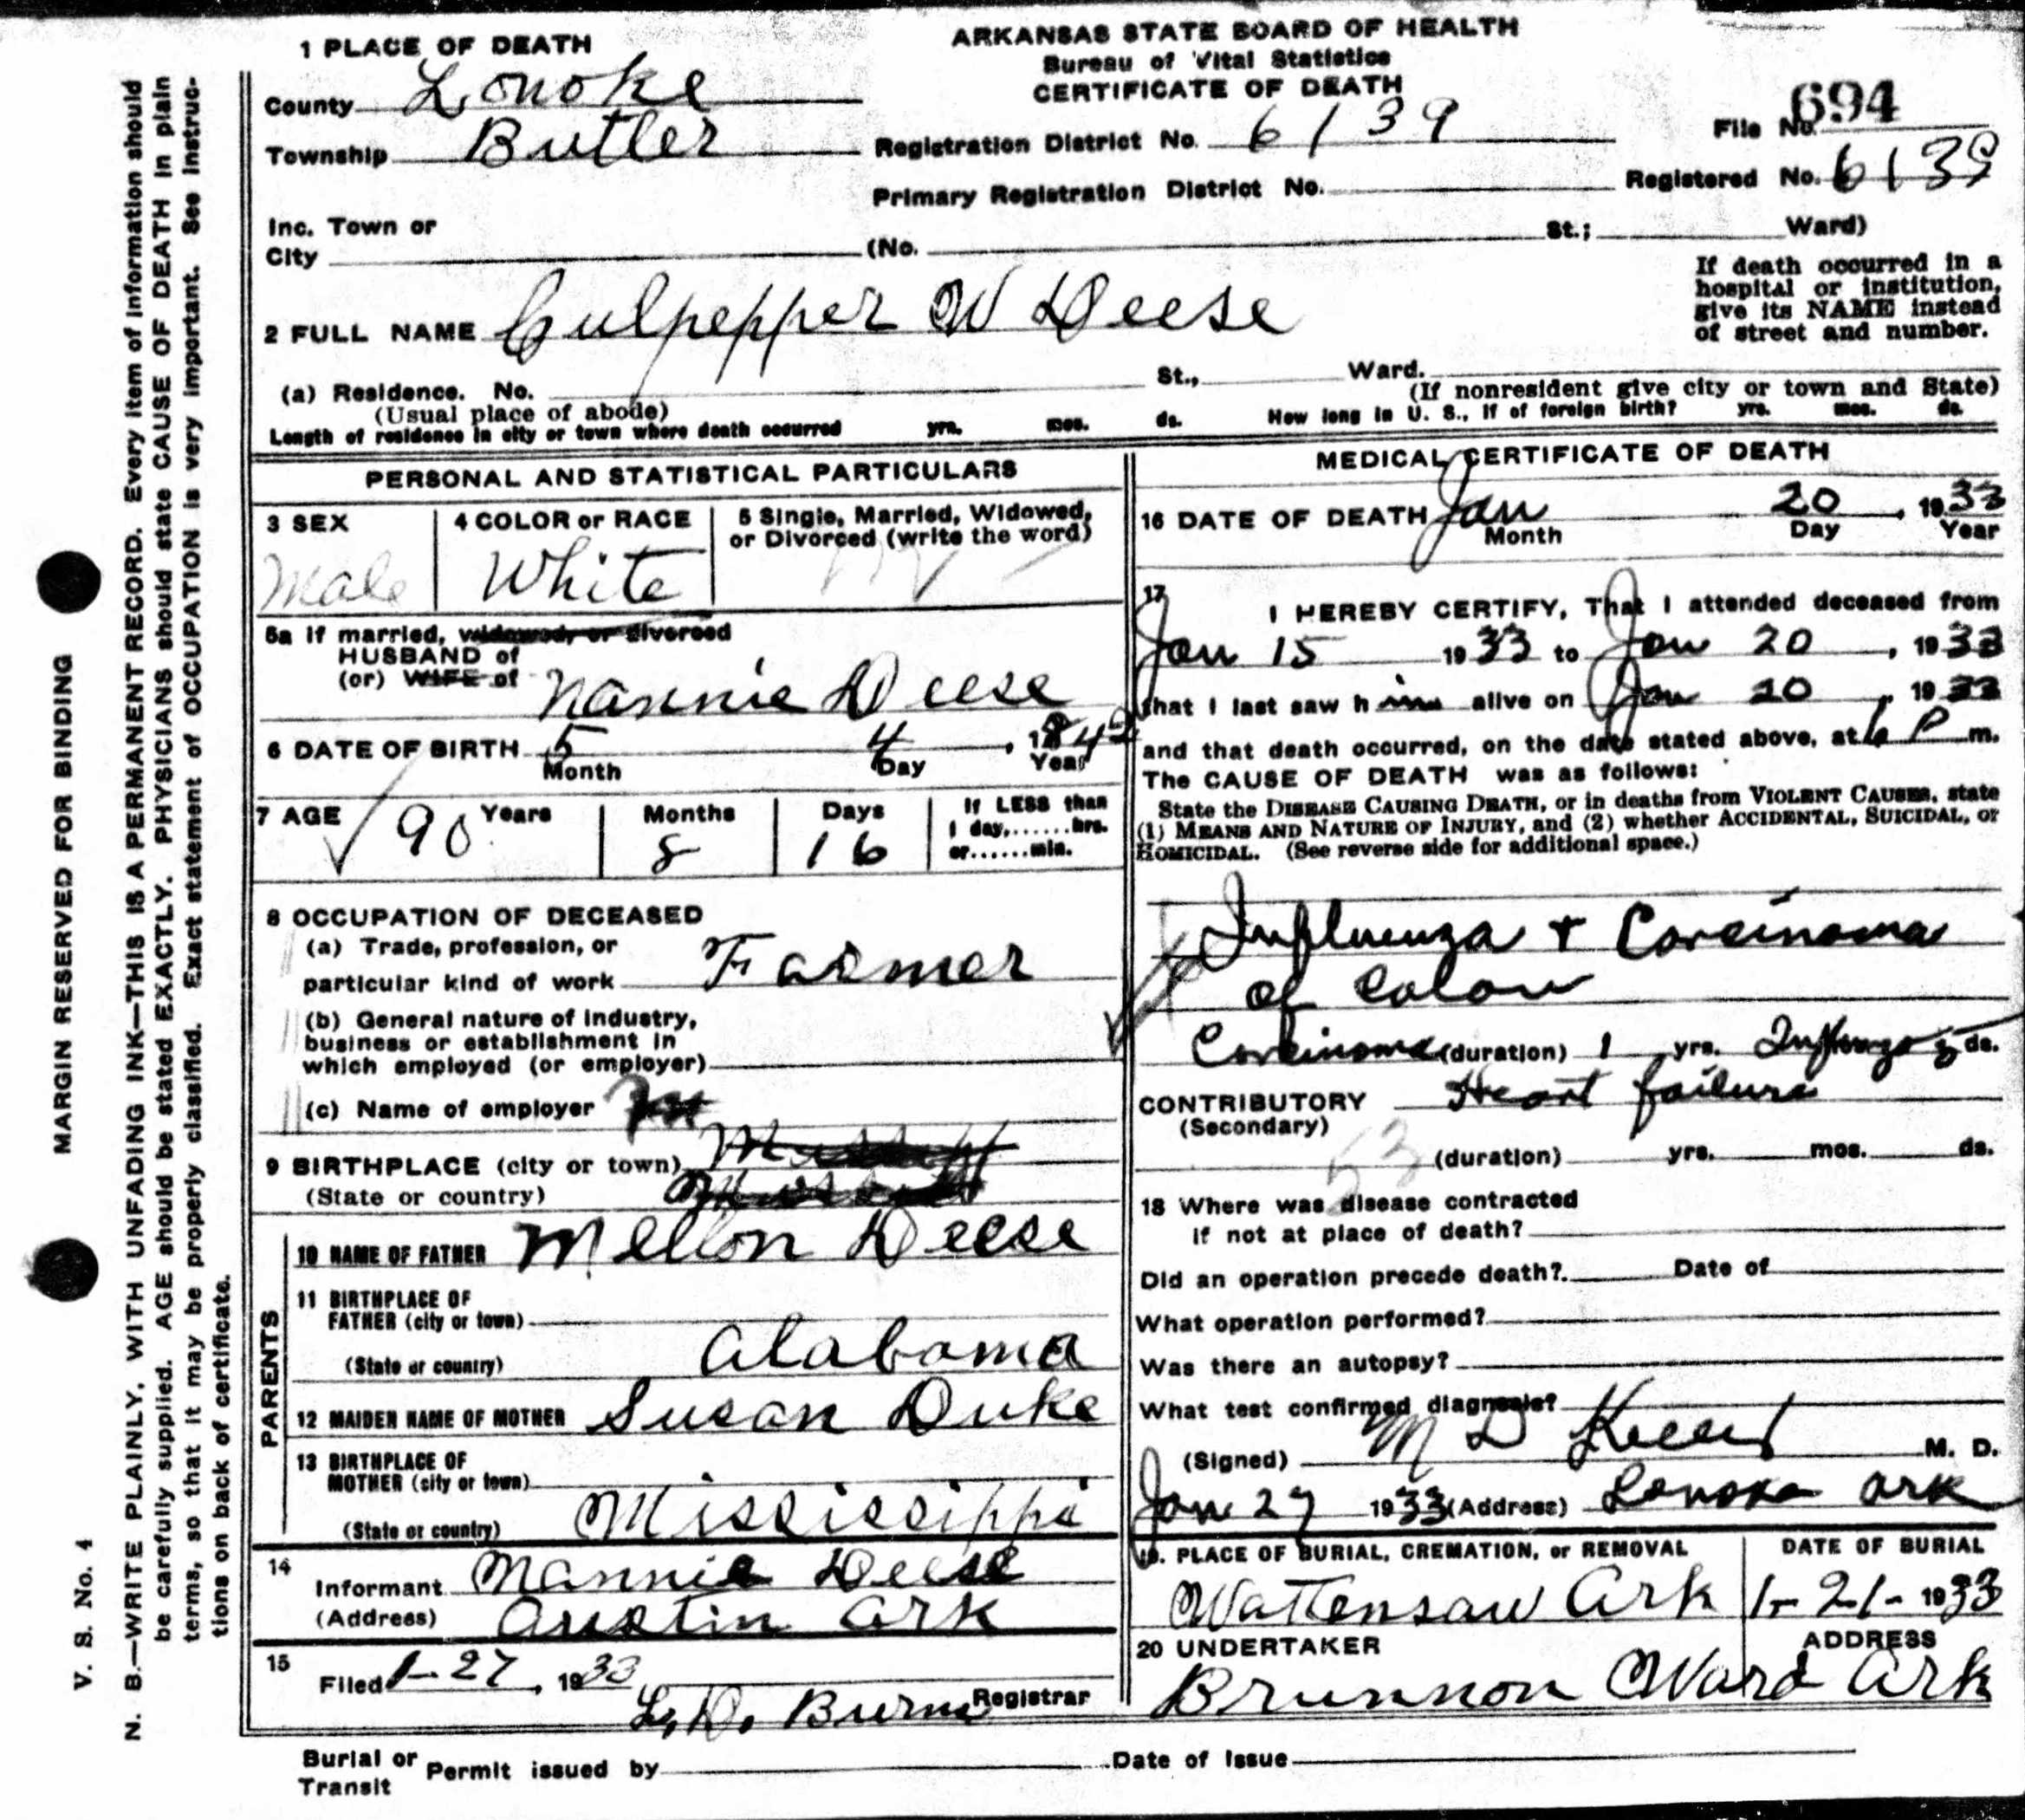 ARKANSAS STATE BOARD OF HEALTH
Bureau of Vital Statistics
CERTIFICATE OF DEATH
1 PLACE OF DEATH
County Lonoke
Township Butler
Registration District No. 6139
File No. 694
Primary Registration District No.
Registered No. 6139
Inc. Town or
City (No. St.; Ward)
If death occurred in a
hospital or institution,
give its NAME instead
of street and number.
2 FULL NAME Culpepper W Deese
(a) Residence. No. St., Ward.
(Usual place of abode) (If nonresident give city or town and State)
Length of residence in city or town where death occurred yrs. mos. ds. How long in U. S., if of foreign birth? yrs. mos. ds.
PERSONAL AND STATISTICAL PARTICULARS
3 SEX
Male
4 COLOR or RACE
White
5 Single, Married, Widowed,
or Divorced (write the word)
5a If married, widowed, or divorced
HUSBAND of
(or) WIFE of Nannie Deese
6 DATE OF BIRTH 5 4, 1842
Month Day Year
7 AGE 90 Years 8 Months 16 Days
If LESS than
1 day,......hrs.
or......min.
8 OCCUPATION OF DECEASED
(a) Trade, profession, or
particular kind of work Farmer
(b) General nature of industry,
business or establishment in
which employed (or employer)
(c) Name of employer
9 BIRTHPLACE (city or town)
(State or country)
PARENTS
10 NAME OF FATHER Mellon Deese
11 BIRTHPLACE OF
FATHER (city or town)
(State or country) Alabama
12 MAIDEN NAME OF MOTHER Susan Duke
13 BIRTHPLACE OF
MOTHER (city or town)
(State or country) Mississippi
14
Informant Nannie Deese
(Address) Austin Ark
15
Filed 1-27, 1933
L. D. Burns Registrar
MEDICAL CERTIFICATE OF DEATH
16 DATE OF DEATH Jan 20, 1933
Month Day Year
17
I HEREBY CERTIFY, That I attended deceased from
Jan 15 1933 to Jan 20, 1933
that I last saw him alive on Jan 20, 1933
and that death occurred, on the date stated above, at 6 P m.
The CAUSE OF DEATH was as follows:
State the DISEASE CAUSING DEATH, or in deaths from VIOLENT CAUSES, state
(1) MEANS AND NATURE OF INJURY, and (2) whether ACCIDENTAL, SUICIDAL, or
HOMICIDAL. (See reverse side for additional space.)
Influenza + Carcinoma
of Colon
Carcinoma (duration) 1 yrs. Influenza ds.
CONTRIBUTORY Heart failure
(Secondary)
53
(duration) yrs. mos. ds.
18 Where was disease contracted
if not at place of death?
Did an operation precede death? Date of
What operation performed?
Was there an autopsy?
What test confirmed diagnosis?
(Signed) M D M. D.
Jan 27 1933 (Address) Lonoke Ark
19. PLACE OF BURIAL, CREMATION, or REMOVAL DATE OF BURIAL
Wattensaw Ark 1-21-1933
20 UNDERTAKER ADDRESS
Brunnon Ward Ark
Burial or
Transit Permit issued by Date of Issue
MARGIN RESERVED FOR BINDING
V. S. No. 4
N. B.—WRITE PLAINLY, WITH UNFADING INK—THIS IS A PERMANENT RECORD. Every item of information should
be carefully supplied. AGE should be stated EXACTLY. PHYSICIANS should state CAUSE OF DEATH in plain
terms, so that it may be properly classified. Exact statement of OCCUPATION is very important. See instruc-
tions on back of certificate.